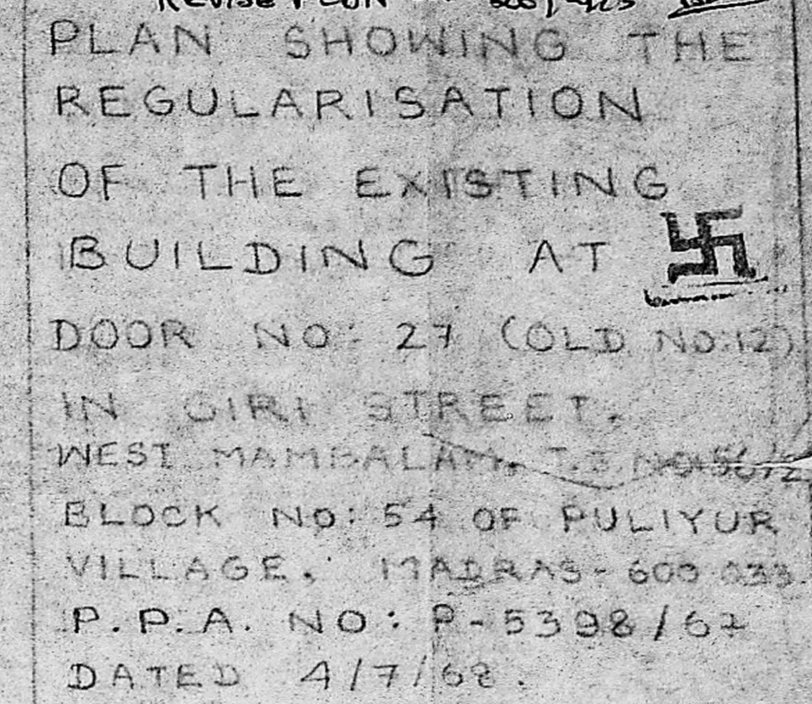 REVISE PLAN
PLAN SHOWING THE
REGULARISATION
OF THE EXISTING
BUILDING AT
DOOR NO: 27 (OLD NO:12)
IN GIRI STREET.
WEST MAMBALAM, T.S. NO:56/2
BLOCK NO: 54 OF PULIYUR
VILLAGE. MADRAS-600 033
P.P.A. NO: P-5398/67
DATED 4/7/68.